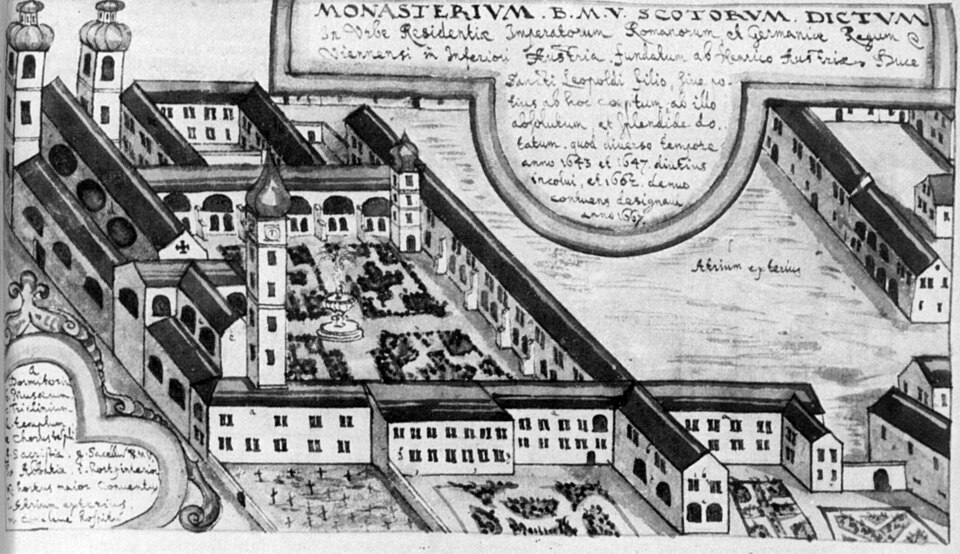 MONASTERIVM . B. M. V. SCOTORVM. DICTVM
In Vrbe Residentiæ Imperatorum Romanorum et Germaniæ Regum &
Viennensi in Inferiori Austria, fundatum ab Henrico Austriæ Duce
Sancti Leopoldi filio,
tius ab hoc cœptum, ab illo
absolutum et splendide do,,
tatum, quod diverso tempore
anno 1643 et 1647 diutius
incolui, et 1662 denuo
conuens designaui
anno
Atrium exterius
a
Dormitoriu
Musæum.
Triclinium.
templum
Sacristia. g. Sacellu B.M.V
Abbatia
Hortus maior Conuentus
Atrium exterius